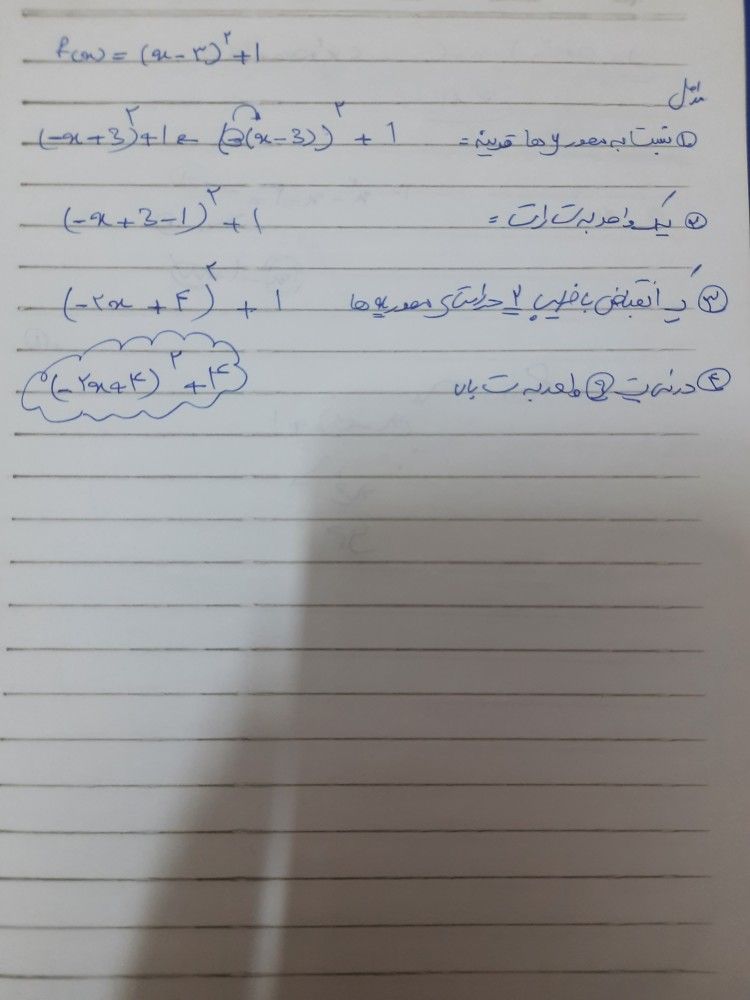 f(x) = (x - ۳)^۲ + 1
مراحل
① نسبت به محور y ها قرینه = (-(x - 3))^۲ + 1 ← (-x + 3)^۲ + 1
② یک واحد به سمت راست = (-x + 3 - 1)^۲ + 1
③ یک انقباض با ضریب ۲ در راستای محور x ها (-۲x + ۴)^۲ + 1
④ در نهایت واحد به سمت بالا (-۲x + ۴)^۲ + ۴